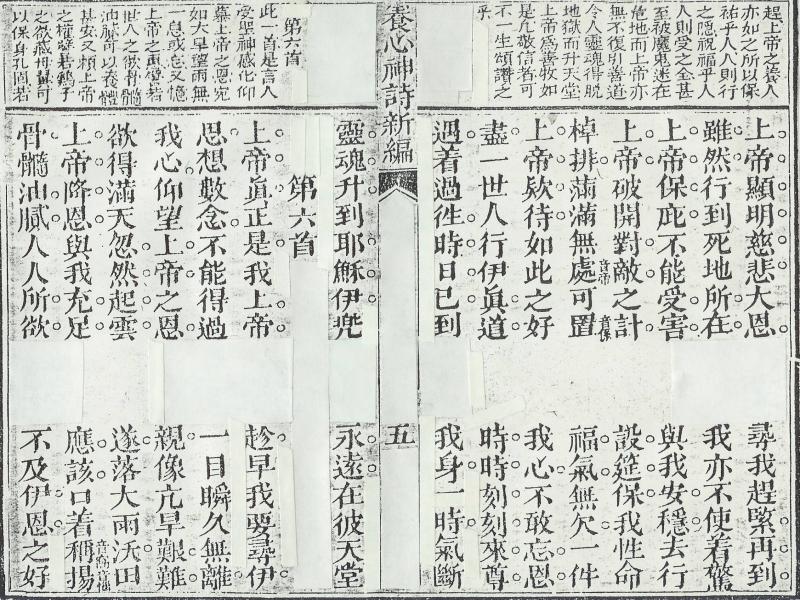 趕上帝之養人
亦如之所以保
祐乎人人則行
之隱祝福乎人
人則受之金甚
至被魔鬼迷在
危地而上帝亦
無不復引善道
令人靈魂得脫
地獄而升天堂
上帝爲善牧如
是凡敬信者可
不一生頌讚之
乎
上帝顯明慈悲大恩 尋我趕緊再到
雖然行到死地所在 我亦不使着驚
上帝保庇不能受害 與我安穩去行
上帝破開對敵之計 設筵保我性命
棹排滿滿無處可置 福氣無欠一件
上帝欵待如此之好 我心不敢忘恩
盡一世人行伊眞道 時時刻刻來尊
遇着過徃時日已到 我身一時氣斷
養心神詩新編 五
靈魂升到耶穌伊兜 永遠在彼天堂
第六首
此一首是言人
受聖神感化仰
慕上帝之恩宛
如大旱望雨無
一息或忘又憶
上帝之惠譬若
世人之欲骨髓
油膩可以養體
甚安又賴上帝
之權譬若鷄子
之欲母翼可
以保身孔固若
第六首
上帝眞正是我上帝 趁早我要尋伊
思想數念不能得過 一目瞬久無離
我心仰望上帝之恩 親像亢旱艱難
欲得滿天忽然起雲 遂落大雨沃田
上帝降恩與我充足 應該口着稱揚
骨髓油膩人人所欲 不及伊恩之好